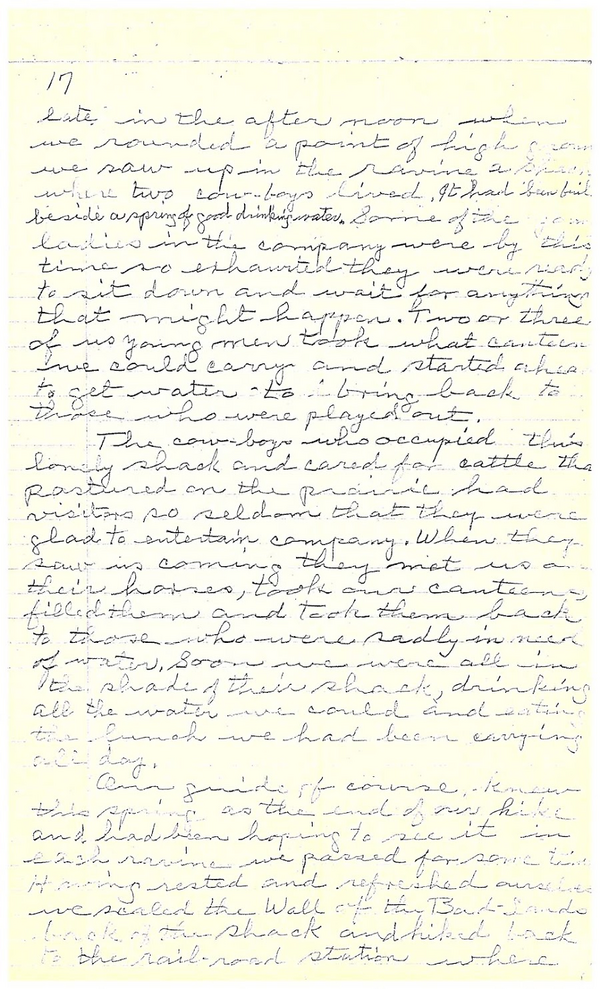 17
late in the after noon when
we rounded a point of high
we saw up in the ravine a
where two cow-boys lived. It had been buil
beside a spring of good drinking water. Some of the
ladies in the company were by this
time so exhausted they were ready
to sit down and wait for anything
that might happen. Two or three
of us young men took what canteen
we could carry and started ahea
to get water to bring back to
those who were played out.
The cow-boys who occupied this
lonely shack and cared for cattle tha
pastured on the prairie had
visitors so seldom that they were
glad to entertain company. When they
saw us coming they met us o
their horses, took our canteens,
filled them and took them back
to those who were sadly in need
of water. Soon we were all in
the shade of their shack, drinking
all the water we could and eating
the lunch we had been carrying
all day.
Our guide of course, knew
this spring as the end of our hike
and had been hoping to see it in
each ravine we passed for some tim
Having rested and refreshed ourselves
we scaled the Wall of the Bad-Lands
back of the shack and hiked back
to the rail-road station where